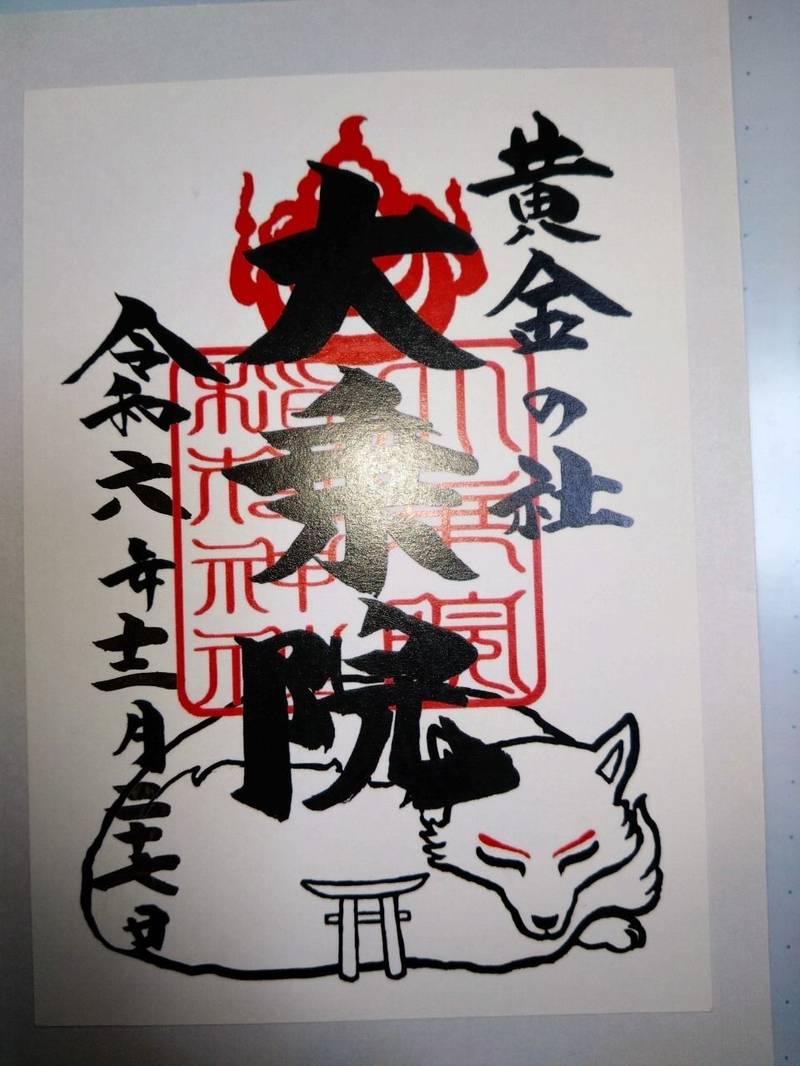 黄金の社
大乗院
大乗院
稲荷神社
令和六年十二月二十七日